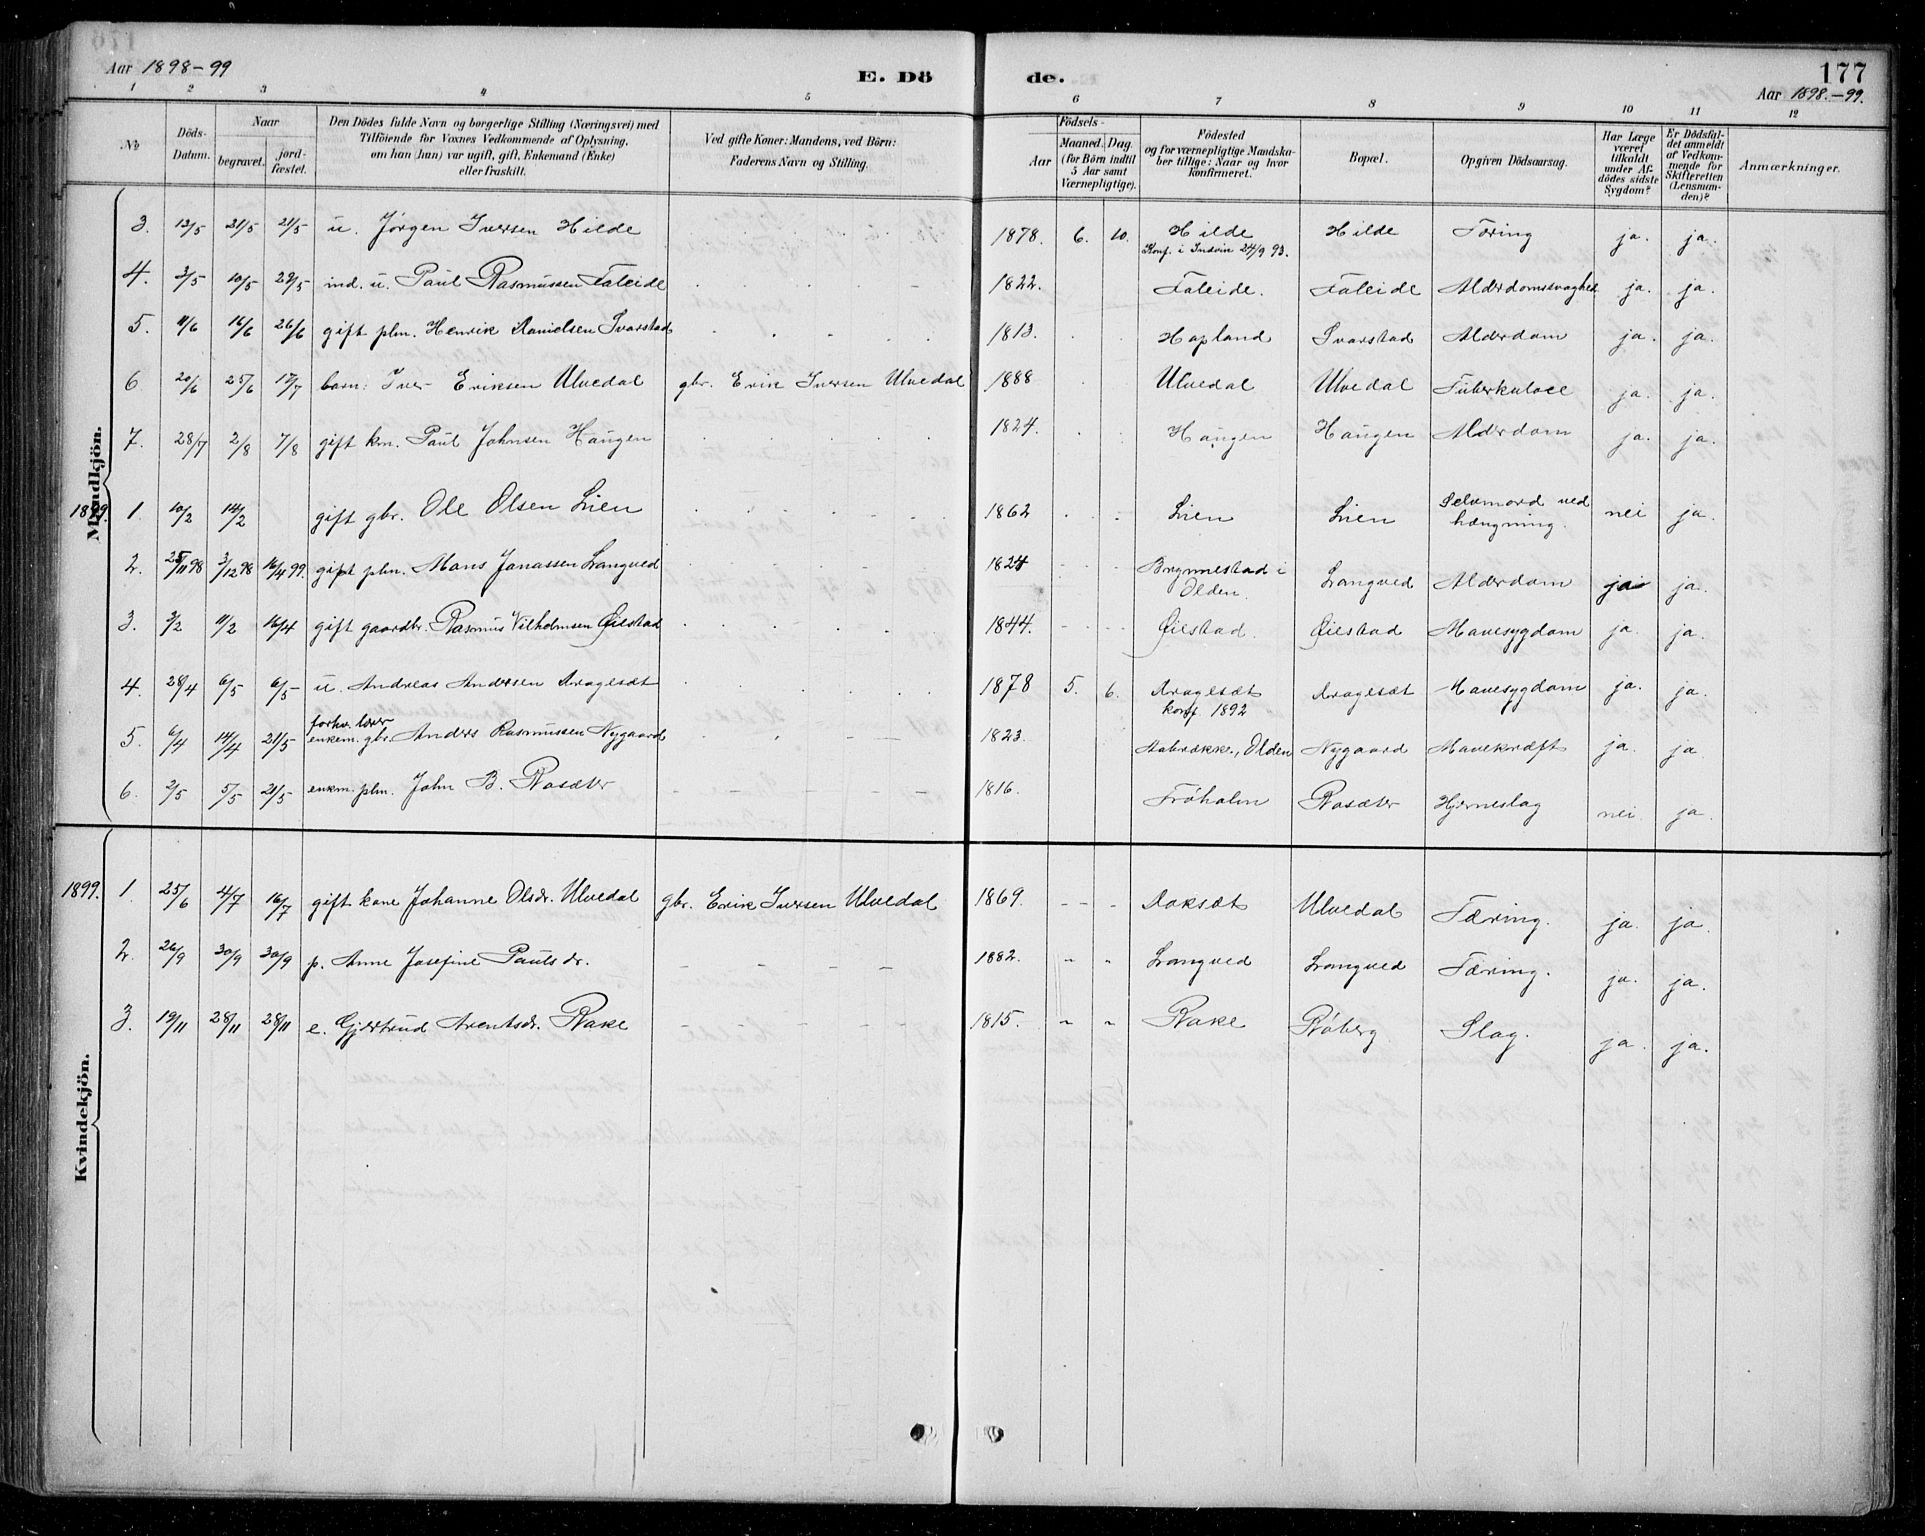 Aar 1898-99
E. Dö
de.
177
Aar 1898.-99.
1 2 3 4 5 6 7 8 9 10 11 12
No
Döds-Datum.
Naar
begravet.
jord-fæstet.
Den Dödes fulde Navn og borgerlige Stilling (Næringsvei) med
Tilföiende for Voxnes Vedkommende af Oplysning,
om han (hun) var ugift, gift, Enkemand (Enke)
eller fraskilt.
Ved gifte Koner: Mandens, ved Börn:
Faderens Navn og Stilling.
Födsels-
Aar
Maaned.
Dag.
(for Börn indtil
5 Aar samt
Værnepligtige).
Födested
og for værnepligtige Mandska-
ber tillige: Naar og hvor
konfirmeret.
Bopæl.
Opgiven Dödsaarsag.
Har Læge
været
tilkaldt
under Af-
dödes sidste
Sygdom?
Er Dödsfal-
det anmeldt
af Vedkom-
mende for
Skifteretten
(Lensman-
den)?
Anmærkninger.
Mandkjön.
3. 13/5 21/5 21/5 u. Jørgen Iversen Hilde 1878. 6. 10. Hilde Hilde Tæring ja. ja.
Konf. i Indvin 24/9 93.
4. 3/5 10/5 29/5 ind. u. Paul Rasmussen Faleide 1822. Faleide. Faleide Alderdomssvaghed ja. ja.
5. 11/6 16/6 26/6 gift plm. Henrik Danielsen Svarstad 1813. Hopland Svarstad Alderdom ja. ja.
6 20/6 25/6 17/7 barn: Iver Eriksen Ulvedal gbr. Erik Iversen Ulvedal 1888 Ulvedal Ulvedal Tuberkulose ja. ja.
7. 28/7 2/8 7/8 gift km. Paul Johnsen Haugen 1824. Haugen Haugen Alderdom ja. ja.
1899. 1. 10/2 14/2 gift gbr. Ole Olsen Lien 1862 Lien Lien Selvmord ved nei ja.
hængning.
2. 25/11 98 3/12 98 16/4 99. gift plm. Mons Jonassen Langved 1824 Brynnestad i Langved Alderdom ja ja.
Olden.
3. 3/2 11/2 16/4 gift gaardbr. Rasmus Vilhelmsen Øilstad 1844. Øilstad. Øilstad Mavesygdom ja. ja.
4. 28/4 6/5 6/5 u. Andreas Andersen Dragesæt 1878 5. 6. Dragesæt Dragesæt Mavesygdom ja. ja.
konf. 1892
forhv. lærer
5. 6/4 14/4 21/5 enkem. gbr. Anders Rasmussen Nygaard 1823. Aabrække, Olden Nygaard Mavekræft ja. ja
6. 2/5 5/5 21/5 enkm. plm. John B. Rosæter 1816. Frøholm Rosæter Hjerneslag nei ja.
Kvindekjön.
1899. 1. 25/6 4/7 16/7 gift kone Johanne Olsdr. Ulvedal gbr. Erik Iversen Ulvedal 1869. Roksæt Ulvedal Tæring. ja. ja.
2. 26/9 30/9 30/9 p. Anne Josefine Paulsdr. 1882. Langved Langved Tæring. ja. ja.
3. 19/11 28/11 28/11 e. Gjertrud Arentsdr. Rake 1815. Rake Røberg Slag. ja. ja.